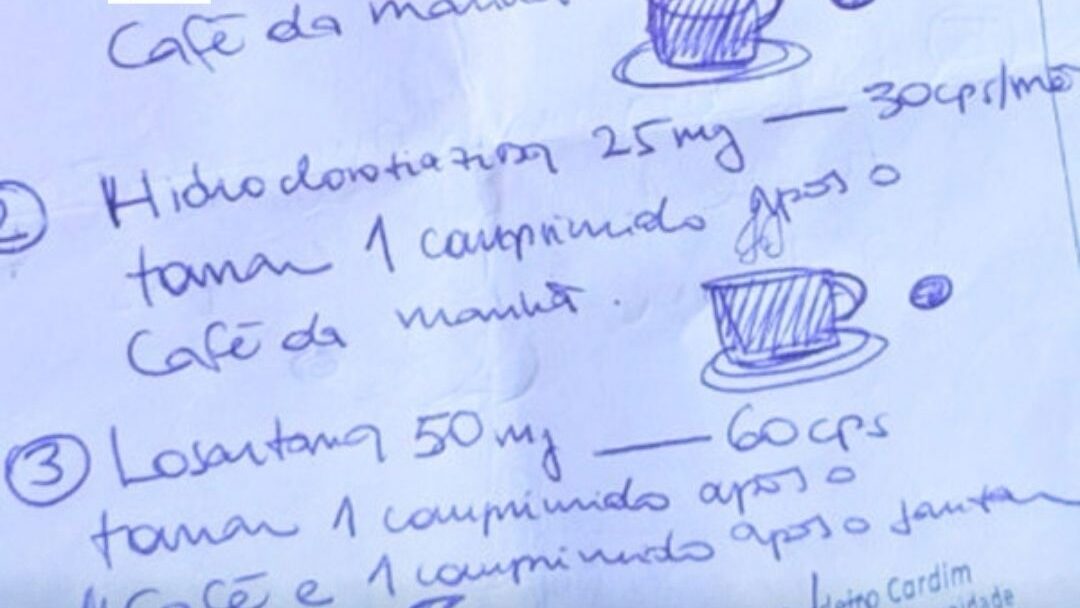 Café da manhã
② Hidroclorotiazida 25mg — 30cps/mê
tomar 1 comprimido após o
Café da manhã.
③ Losartana 50mg — 60cps
tomar 1 comprimido após o
Café e 1 comprimido após o Jantar
Cardim
idade